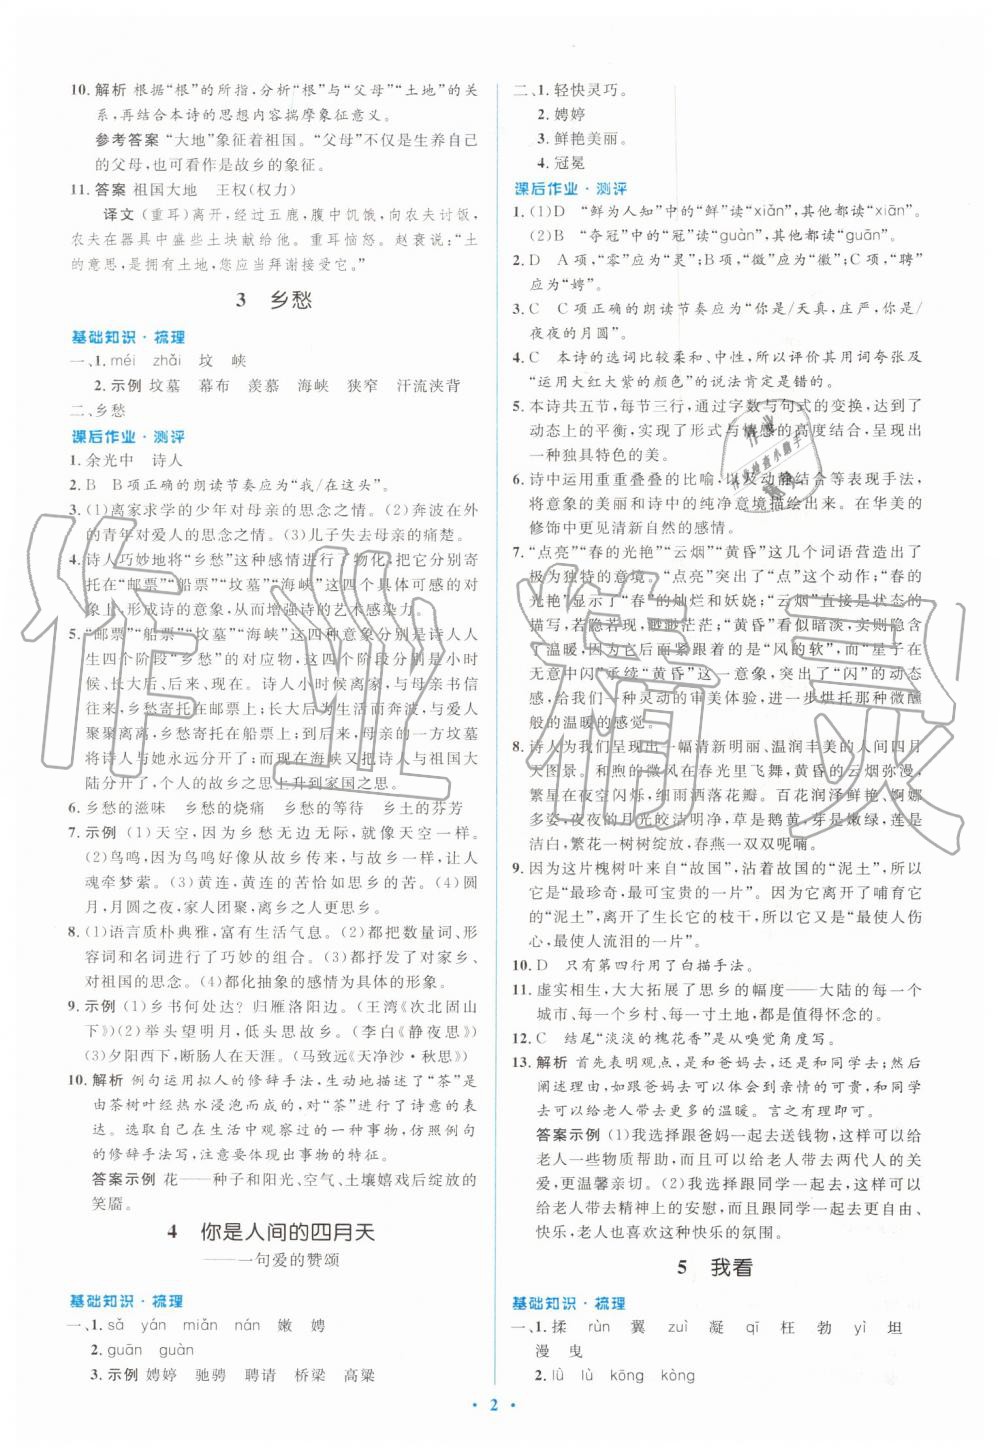 10. 解析 根据“根”的所指，分析“根”与“父母”“土地”的关
系，再结合本诗的思想内容揣摩象征意义。
参考答案 “大地”象征着祖国。“父母”不仅是生养自己
的父母，也可看作是故乡的象征。
11. 答案 祖国大地 王权(权力)
译文 (重耳)离开，经过五鹿，腹中饥饿，向农夫讨饭，
农夫在器具中盛些土块献给他。重耳愤怒。赵衰说：“土
的意思，是拥有土地，您应当拜谢接受于他。”
3 乡愁
基础知识·梳理
一、1. méi zhǎi 坟 峡
2. 示例 坟墓 幕布 羡慕 海峡 狭窄 汗流浃背
二、乡愁
课后作业·测评
1. 余光中 诗人
2. B B项正确的朗读节奏应为“我/在这头”。
3. (1)离家求学的少年对母亲的思念之情。(2)奔波在外
的青年对爱人的思念之情。(3)儿子失去母亲的痛楚。
4. 诗人巧妙地将“乡愁”这种感情进行了物化，把它分别寄
托在“邮票”“船票”“坟墓”“海峡”这四个具体可感的对
象上，形成诗的意象，从而增强诗的艺术感染力。
5. “邮票”“船票”“坟墓”“海峡”这四种意象分别是诗人人
生四个阶段“乡愁”的对应物。四个阶段分别是小时
候、长大后、后来、现在。小时候与母亲书信
往来，乡愁寄托在邮票上；长大后为生活奔波，与爱人
聚聚离离，乡愁寄托在船票上；后来，母亲的一方坟墓
将诗人与她永远分开了；而现在，一湾海峡将诗人与祖国大
陆分开了，个人的故乡之思上升到家国之思。
6. 乡愁的滋味 乡愁的烧痛 乡愁的等待 乡土的芬芳
7. 示例 (1)天空，因为乡愁无边无际，就像天空一样。
(2)鸟鸣，因为鸟鸣好似故乡传来，与故乡一样，让人
魂牵梦萦。(3)黄连，黄连的苦恰如思乡的苦。(4)圆
月，月圆之夜，家人团聚，离乡之人思乡之情更甚。
8. (1)语言质朴典雅，富有生活气息。(2)都把数量词、形
容词和名词进行了巧妙的组合。(3)都抒发了对家乡、
对祖国的思念。(4)都化抽象的感情为具体的形象。
9. 示例 (1)乡书何处达？归雁洛阳边。(王湾《次北固山
下》)(2)举头望明月，低头思故乡。(李白《静夜思》)
(3)夕阳西下，断肠人在天涯。(马致远《天净沙·秋思》)
10. 解析 例句运用拟人的修辞手法，生动地描述了“茶”是
由茶树叶经热水浸泡而成的，对“茶”进行了诗意的表
达。选取自己在生活中观察过的一种事物，仿照例句
的修辞手法写，注意要体现出事物的特征。
答案示例 花——种子和阳光、空气、土壤嬉戏后绽放的
笑靥。
4 你是人间的四月天
——一句爱的赞颂
基础知识·梳理
一、1. sǎ yán miǎn nán 嫩 娉
2. guān guàn
3. 示例 娉婷 驰骋 聘请 桥梁 高粱
二、1. 轻快灵巧。
2. 娉婷
3. 鲜艳美丽。
4. 冠冕
课后作业·测评
1. (1)D “鲜为人知”中的“鲜”读“xiǎn”，其他都读“xiān”。
(2)B “夺冠”中的“冠”读“guàn”，其他都读“guān”。
2. D A项，“零”应为“灵”；B项，“微”应为“徽”；C项，“聘”
应为“娉”。
3. C C项正确的朗读节奏应为“你是/天真，庄严，你是/
夜夜的月圆”。
4. C 本诗的选词比较柔和、中性，所以评价其用词夸张及
“运用大红大紫的颜色”的说法肯定是错的。
5. 本诗共五节，每节三行，通过字数与句式的变换，达到了
动态上的平衡，实现了形式与情感的高度结合，呈现出
一种独具特色的美。
6. 诗中运用重重叠叠的比喻，以及动静结合等表现手法，
将意象的美丽和诗中的纯净意境描绘出来。在华美的
修饰中更见清新自然的感情。
7. “点亮”“春的光艳”“云烟”“黄昏”这几个词语营造出了
极为独特的意境。“点亮”突出了“点”这个动作；“春的
光艳”显示了“春”的灿烂和妖娆；“云烟”突出状态的
描写，若隐若现，渺渺茫茫；“黄昏”看似暗淡，实则隐含
了温暖，因为后面紧跟着的是“风的软”，而“星子在
无意中闪”承续“黄昏”这一意境，突出了“闪”的动态
感，给我们一种灵动的审美体验，进一步烘托那种微醺
般的温暖的感觉。
8. 诗人为我们呈现出一幅清新明丽、温润丰美的人间四月
天图景。和煦的微风在春光里起舞，黄昏的云烟弥漫，
繁星在夜空闪烁，细雨洒落花瓣。百花润泽鲜艳、婀娜
多姿，夜夜的月光皎洁明净，草是鹅黄，芽是嫩绿，莲是
洁白，繁花一树树绽放，春燕一双双呢喃。
9. 因为这片槐树叶来自“故国”，沾着故国的“泥土”，所以
它是“最珍奇，最可宝贵的一片”。因为它离开了哺育它
的“泥土”，离开了生长它的枝干，所以它又是“最使人伤
心，最使人流泪的一片”。
10. D 只有第四行用了白描手法。
11. 虚实相生，大大拓展了思乡的幅度——大陆的每一个
城市、每一个乡村、每一寸土地，都是值得怀念的。
12. C 结尾“淡淡的槐花香”是从嗅觉角度写。
13. 解析 首先表明观点，是和爸妈去，还是和同学去，然后
阐述理由，如跟爸妈去可以体会到亲情的可贵，和同学
去可以给老人带去更多的温暖。
答案示例 (1)我选择跟爸妈一起去送钱物，这样可以给
老人一些物质帮助，同时给老人带去两代人的关爱，
更温馨亲切。(2)我选择跟同学一起去，这样可以给
老人带去精神上的安慰，而且同学一起去，自由、
快乐，老人也喜欢这种快乐的氛围。
5 我看
基础知识·梳理
一、1. 揉 rùn 翼 zuì 凝 qī 枉 勃 yì 坦
漫 曳
2. lǜ lù kōng kòng
· 2 ·
作业精灵